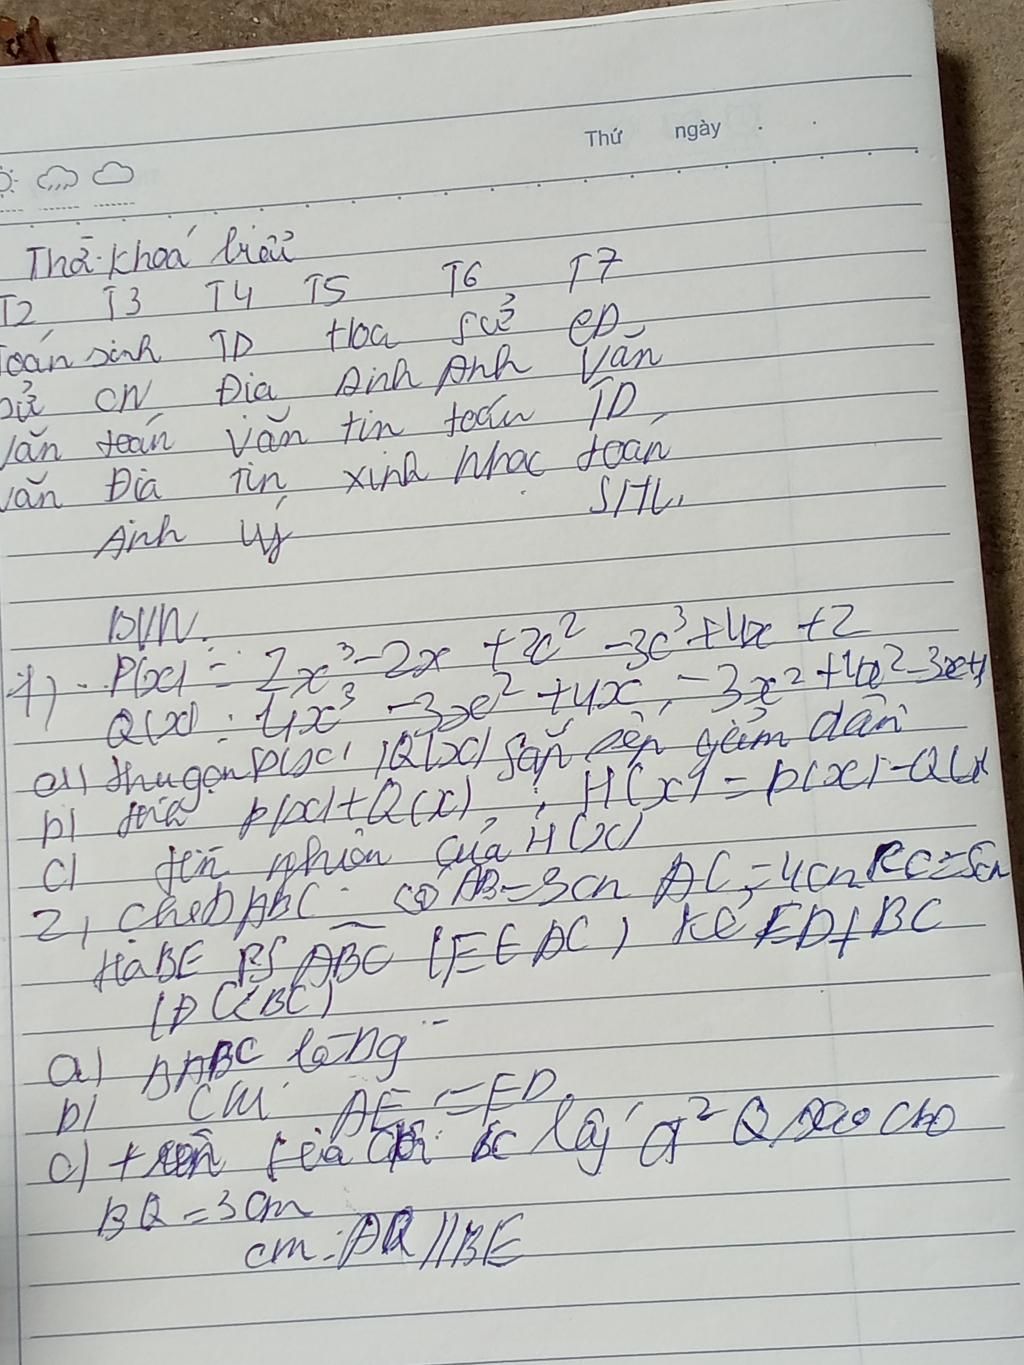 Thứ ngày
Thờ khoá biểu
T2 T3 T4 T5 T6 T7
Toán sinh TD Hoa sử CD
sử CN Địa Anh Anh Văn
Văn toán Văn tin toán TD
văn Địa Tin sinh Nhạc toán
Anh lý SHL.
BVN.
1) P(x) = 2x³ - 2x + x² - x³ + 4x + 2
Q(x) : 4x³ - 3x² + 4x - 3x² + 4x² - 3x + 4
a) thu gọn P(x), Q(x) sắp xếp giảm dần
b) tính P(x) + Q(x); H(x) = P(x) - Q(x)
c) tìm nghiệm của H(x)
2, cho ΔABC có AB = 3cm AC = 4cm BC = 5cm
Hạ BE PG ABC (E ∈ AC) kẻ ED ⊥ BC
(D ∈ BC)
a) ΔABC là Δg
b) CM AE = ED.
c) trên tia lấy đ² Q sao cho
BQ = 3cm
cm: AQ // BE